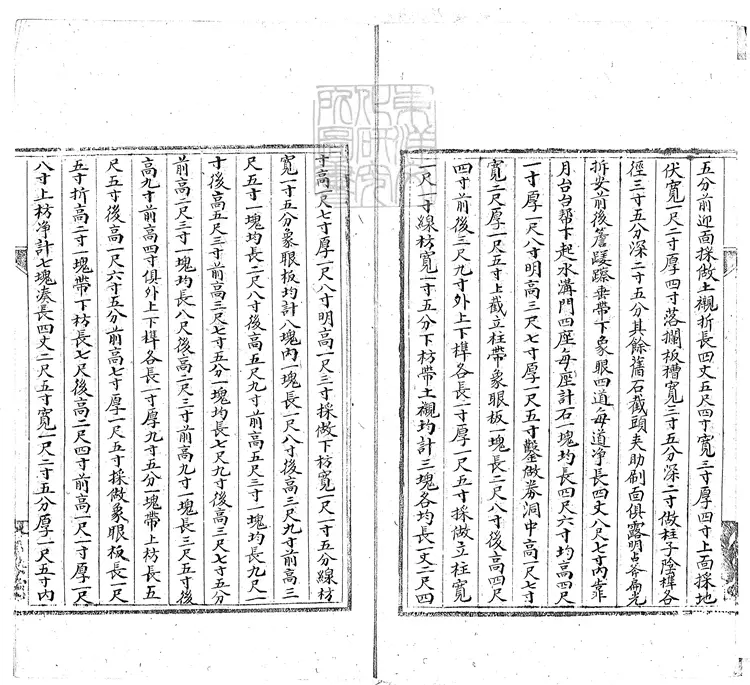 五分前迎面採做土襯折長四丈五尺四寸寬三寸厚四寸上面採地
伏寬一尺二寸厚四寸落攔板槽寬三寸五分深二寸做柱子陰榫各
徑三寸五分深二寸五分其餘舊石截頭夾肋刷面俱露明占斧扁光
拆安前後簷踏䠫垂帶下象眼四道每道淨長四丈八尺七寸內靠
月台台幫下起水溝門四座每座計石一塊均長四尺六寸均高四尺
一寸厚一尺八寸明高三尺七寸厚一尺五寸鑿做券洞中高一尺七寸
寬二尺厚一尺五寸上截立柱帶象眼板一塊長二尺八寸後高四尺
四寸前後三尺九寸外上下榫各長二寸厚一尺五寸採做立柱寬
一尺一寸線枋寬一寸五分下枋帶土襯均計三塊各均長一丈二尺四
寸高一尺七寸厚一尺八寸明高一尺三寸採做下枋寬一尺一寸五分線枋
寬一寸五分象眼板均計八塊內一塊長一尺八寸後高三尺九寸前高三
尺五寸一塊均長二尺八寸後高五尺九寸前高五尺三寸一塊均長九尺一
寸後高五尺三寸前高三尺七寸五分一塊均長七尺九寸後高三尺七寸五分
前高二尺三寸一塊均長八尺後高二尺三寸前高九寸一塊長三尺五寸後
高九寸前高四寸俱外上下榫各長一寸厚九寸五分一塊帶上枋長五
尺五寸後高一尺六寸五分前高七寸厚一尺五寸採做象眼板長一尺
五寸折高二寸一塊帶下枋長七尺後高二尺四寸前高一尺一寸厚一尺
八寸上枋淨計七塊湊長四丈二尺五寸寬一尺二寸五分厚一尺五寸內